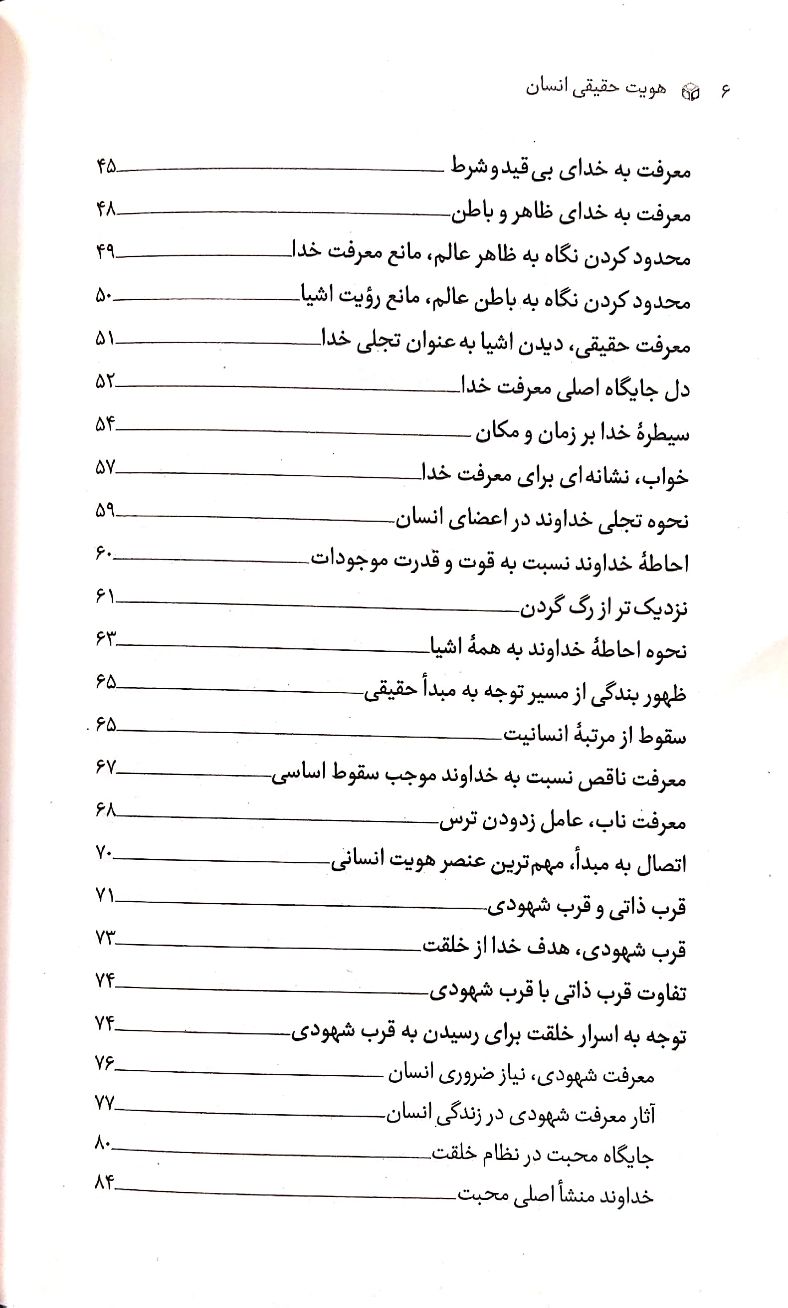 ۶ هویت حقیقی انسان
معرفت به خدای بی‌قید و شرط ۴۵
معرفت به خدای ظاهر و باطن ۴۸
محدود کردن نگاه به ظاهر عالم، مانع معرفت خدا ۴۹
محدود کردن نگاه به باطن عالم، مانع رؤیت اشیا ۵۰
معرفت حقیقی، دیدن اشیا به عنوان تجلی خدا ۵۱
دل جایگاه اصلی معرفت خدا ۵۲
سیطرهٔ خدا بر زمان و مکان ۵۴
خواب، نشانه‌ای برای معرفت خدا ۵۷
نحوه تجلی خداوند در اعضای انسان ۵۹
احاطهٔ خداوند نسبت به قوت و قدرت موجودات ۶۰
نزدیک‌تر از رگ گردن ۶۱
نحوه احاطهٔ خداوند به همهٔ اشیا ۶۳
ظهور بندگی از مسیر توجه به مبدأ حقیقی ۶۵
سقوط از مرتبهٔ انسانیت ۶۵
معرفت ناقص نسبت به خداوند موجب سقوط اساسی ۶۷
معرفت ناب، عامل زدودن ترس ۶۸
اتصال به مبدأ، مهم‌ترین عنصر هویت انسانی ۷۰
قرب ذاتی و قرب شهودی ۷۱
قرب شهودی، هدف خدا از خلقت ۷۳
تفاوت قرب ذاتی با قرب شهودی ۷۴
توجه به اسرار خلقت برای رسیدن به قرب شهودی ۷۴
معرفت شهودی، نیاز ضروری انسان ۷۶
آثار معرفت شهودی در زندگی انسان ۷۷
جایگاه محبت در نظام خلقت ۸۰
خداوند منشأ اصلی محبت ۸۴